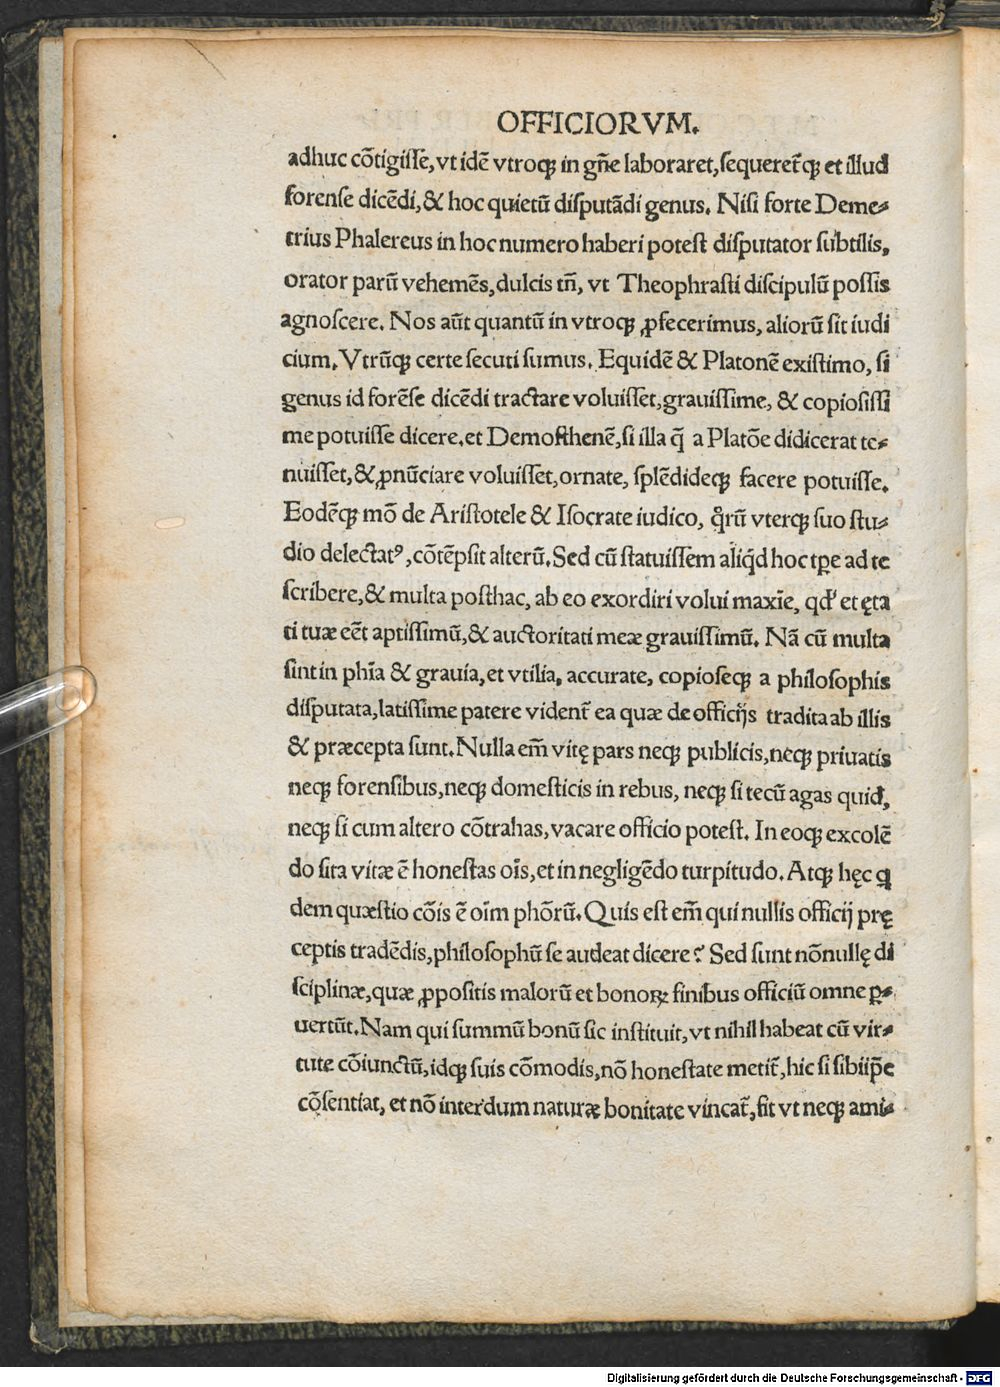 OFFICIORVM.
adhuc cõtigiſſe, vt idẽ vtroqꝫ in gñe laboraret, ſequeret̃qꝫ et illud
forenſe dicẽdi, & hoc quietũ diſputãdi genus. Niſi forte Deme⸗
trius Phalereus in hoc numero haberi poteſt diſputator ſubtilis,
orator parũ vehemẽs, dulcis tñ, vt Theophraſti diſcipulũ poſſis
agnoſcere. Nos aũt quantũ in vtroqꝫ ꝓfecerimus, aliorũ ſit iudi
cium. Vtrũqꝫ certe ſecuti ſumus. Equidẽ & Platonẽ exiſtimo, ſi
genus id forẽſe dicẽdi tractare voluiſſet, grauiſſime, & copioſiſſi
me potuiſſe dicere. et Demoſthenẽ, ſi illa q̃ a Platõe didicerat te⸗
nuiſſet, & ꝓnũciare voluiſſet, ornate, ſplẽdideqꝫ facere potuiſſe.
Eodẽqꝫ mõ de Ariſtotele & Iſocrate iudico, qͦrũ vterqꝫ ſuo ſtu⸗
dio delectatꝰ, cõtẽpſit alterũ. Sed cũ ſtatuiſſem aliqͥd hoc tꝑe ad te
ſcribere, & multa poſthac, ab eo exordiri volui maxĩe, qđ et ęta
ti tuæ eẽt aptiſſimũ, & auctoritati meæ grauiſſimũ. Nã cũ multa
ſint in phĩa & grauia, et vtilia, accurate, copioſeqꝫ a philoſophis
diſputata, latiſſime patere vident̃ ea quæ de officijs tradita ab illis
& præcepta ſunt. Nulla em̃ vitę pars neqꝫ publicis, neqꝫ priuatis
neqꝫ forenſibus, neqꝫ domeſticis in rebus, neqꝫ ſi tecũ agas quid,
neqꝫ ſi cum altero cõtrahas, vacare officio poteſt. In eoqꝫ excolẽ
do ſita vitæ ẽ honeſtas oĩs, et in negligẽdo turpitudo. Atqꝫ hęc ꝗ
dem quæſtio cõis ẽ oĩm phõrũ. Quis eſt em̃ qui nullis officij prę
ceptis tradẽdis, philoſophũ ſe audeat dicere? Sed ſunt nõnullę di
ſciplinæ, quæ ꝓpoſitis malorũ et bonoꝝ finibus officiũ omne ꝑ⸗
uertũt. Nam qui ſummũ bonũ ſic inſtituit, vt nihil habeat cũ vir⸗
tute cõiunctũ, idqꝫ ſuis cõmodis, nõ honeſtate metit̃, hic ſi ſibi ip̃e
cõſentiat, et nõ interdum naturæ bonitate vincat̃, fit vt neqꝫ ami⸗
Digitalisierung gefördert durch die Deutsche Forschungsgemeinschaft - DFG